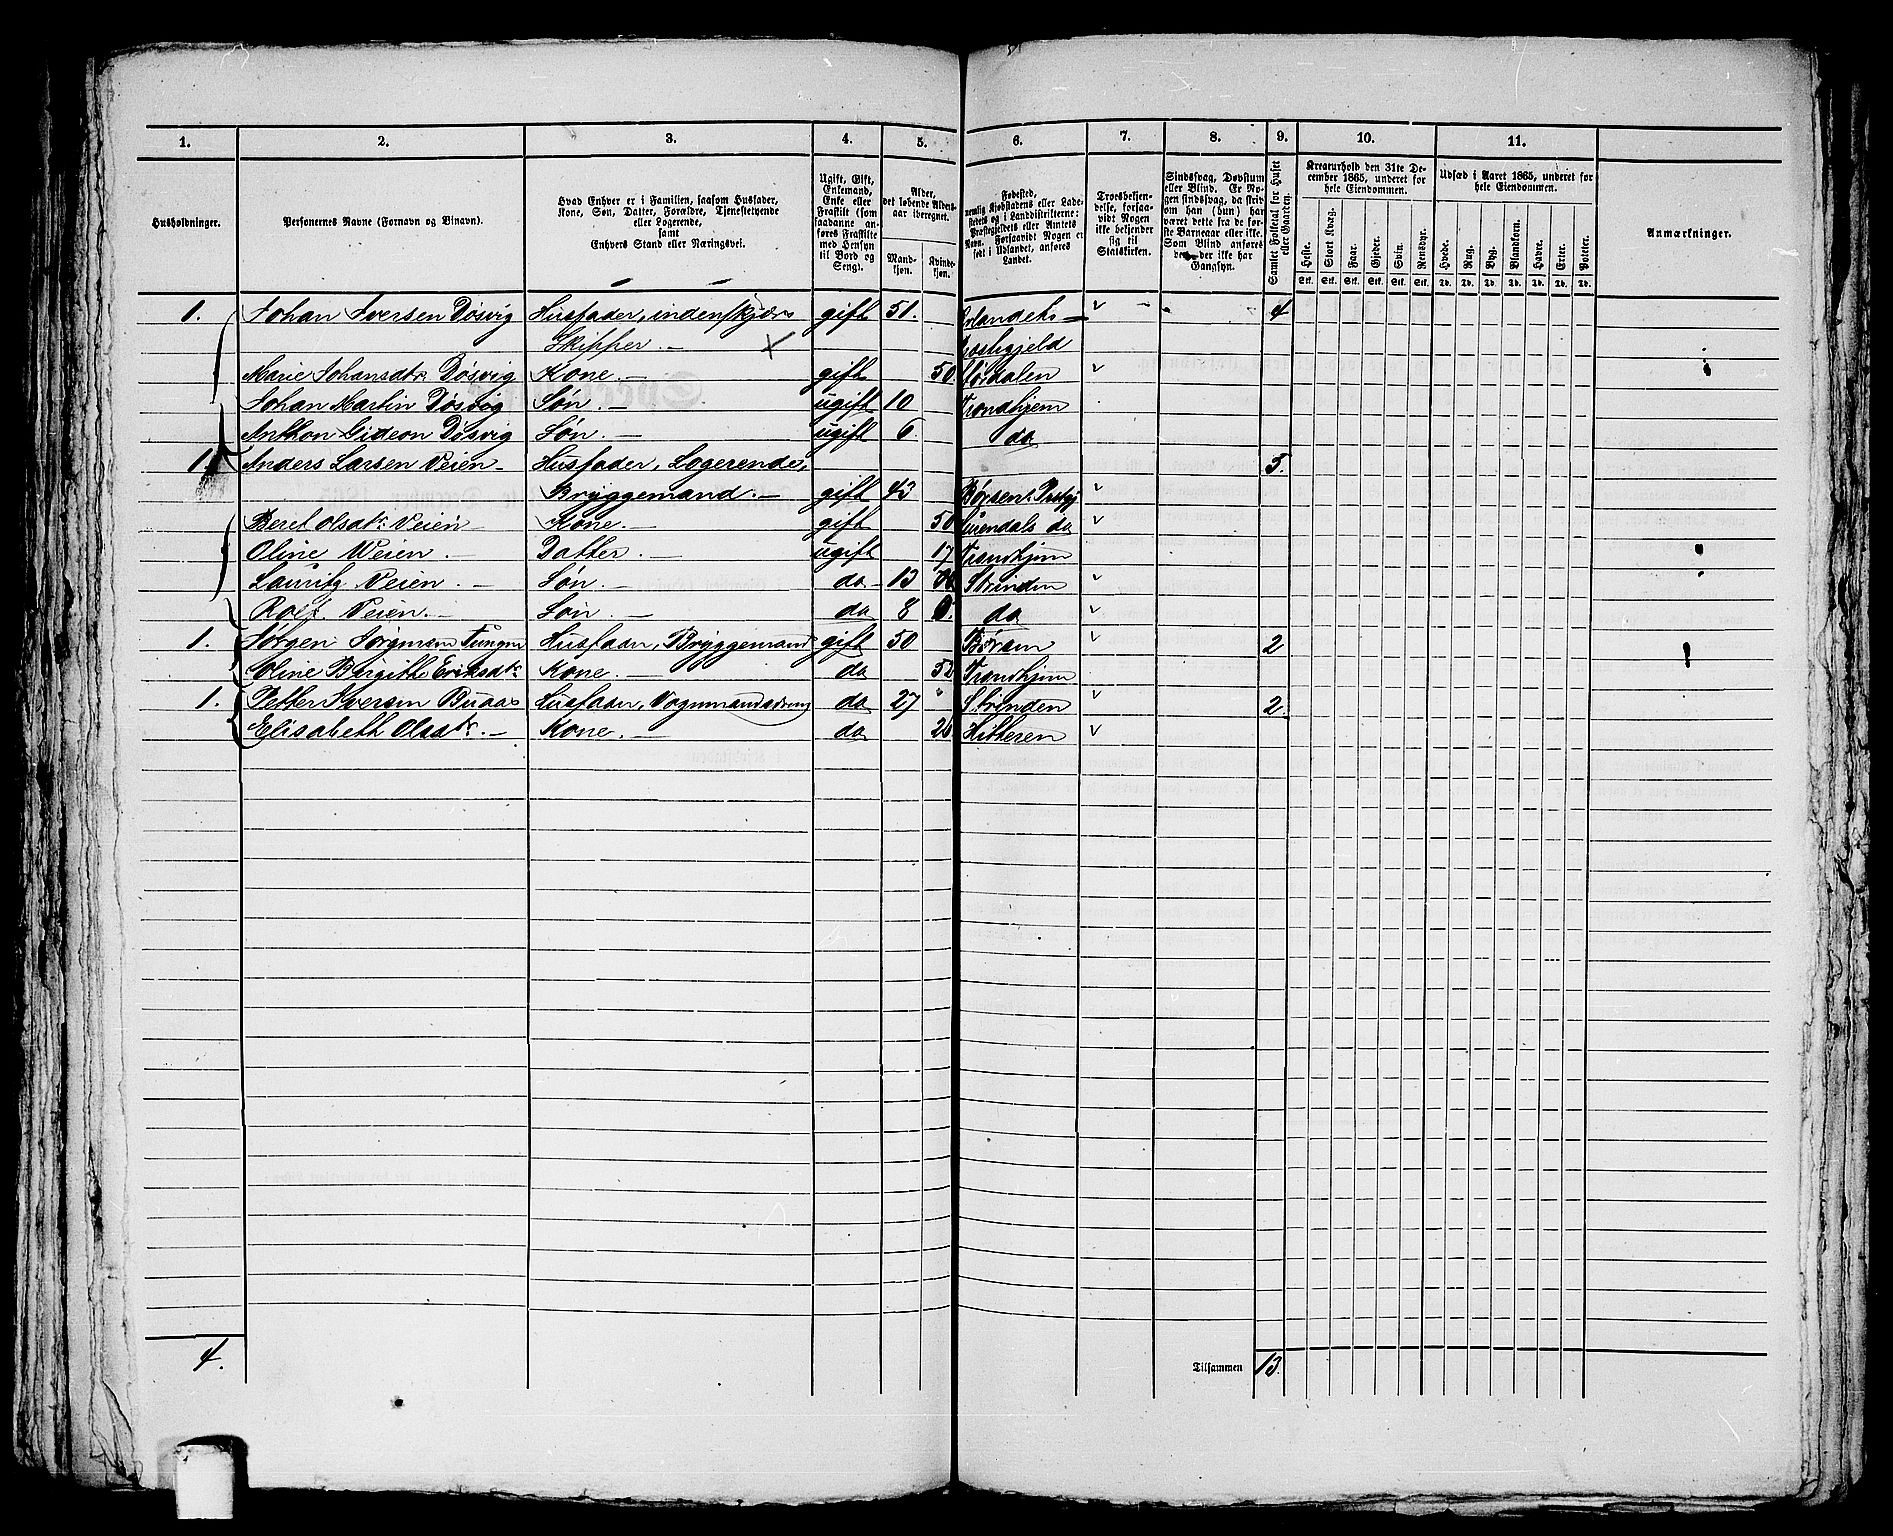 1. 2. 3. 4. 5. 6. 7. 8. 9. 10. 11.
Husholdninger. Personernes Navne (Fornavn og Binavn). Hvad Enhver er i Familien, saasom Husfader, Kone, Søn, Datter, Forældre, Tjenestetyende eller Logerende, samt Enhvers Stand eller Næringsvei. Ugift, Gift, Enkemand, Enke eller Fraskilt (som saadanne anføres Fraskilte med Hensyn til Bord og Seng). Alder, det løbende Alders-aar iberegnet. Mand-kjøn. Kvinde-kjøn. Fødested, nemlig Kjøbstadens eller Ladestedets og i Landdistrikterne: Præstegjeldets eller Amtets Navn. Forsaavidt Nogen er født i Udlandet, anføres Landet. Troesbekjendelse, forsaavidt Nogen ikke bekjender sig til Statskirken. Sindssvag, Døvstum eller Blind. Er Nogen sindssvag, da skrives om han (hun) har været dette fra de første Barneaar eller ikke. Som Blind anføres den, der ikke har Gangsyn. Samlet Folketal for Huset eller Gaarden. Kreaturhold den 31te December 1865, underet for hele Eiendommen. Udsæd i Aaret 1865, underet for hele Eiendommen. Anmærkninger.
Heste. Stort Kvæg. Faar. Gjeder. Svin. Rensdyr. Hvede. Rug. Byg. Blandkorn. Havre. Erter. Poteter.
Stk. Stk. Stk. Stk. Stk. Stk. Td. Td. Td. Td. Td. Td. Td.
1. Johan Iversen Døsvig Husfader, indenskjærs gift 51. Ørlandets 4
Skipper. Præstegjeld
Marie Johansdtr. Døsvig Kone. gift 50. Størdalen
Johan Martin Døsvig Søn. ugift 10 Trondhjem
Anthon Gideon Døsvig Søn. ugift 6. do
1. Anders Larsen Veien Husfader, Logerende, 5.
Bryggemand. gift 43 Børsens Prstgj
Beret Olsdtr. Veien Kone. gift 50 do
Oline Veien Datter. ugift 17 Trondhjem
Lauritz Veien. Søn. do 13 Strinden
Rolf. Veien. Søn. do 8 do
1. Jørgen Jørgensen Husfader, Bryggemand gift 50 Børsen 2
Oline Birgith Eriksdtr. Kone. do 52 Trondhjem
1. Petter Iversen Buaas Husfader, Vognmandsdreng do 27 Strinden 2.
Elisabeth Olsdtr. Kone. do 26. Hitteren
4. Tilsammen 13.